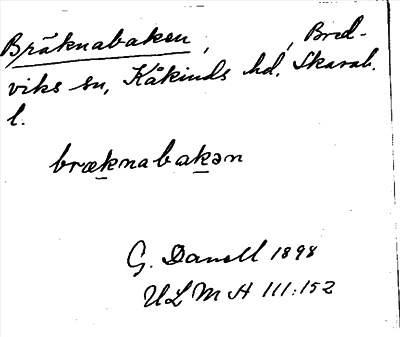 Bräknabaken, , Bred-
viks sn, Kåkinds hd, Skarab.
l.
bræknabakən
G. Danell 1898
ULMA 111:152